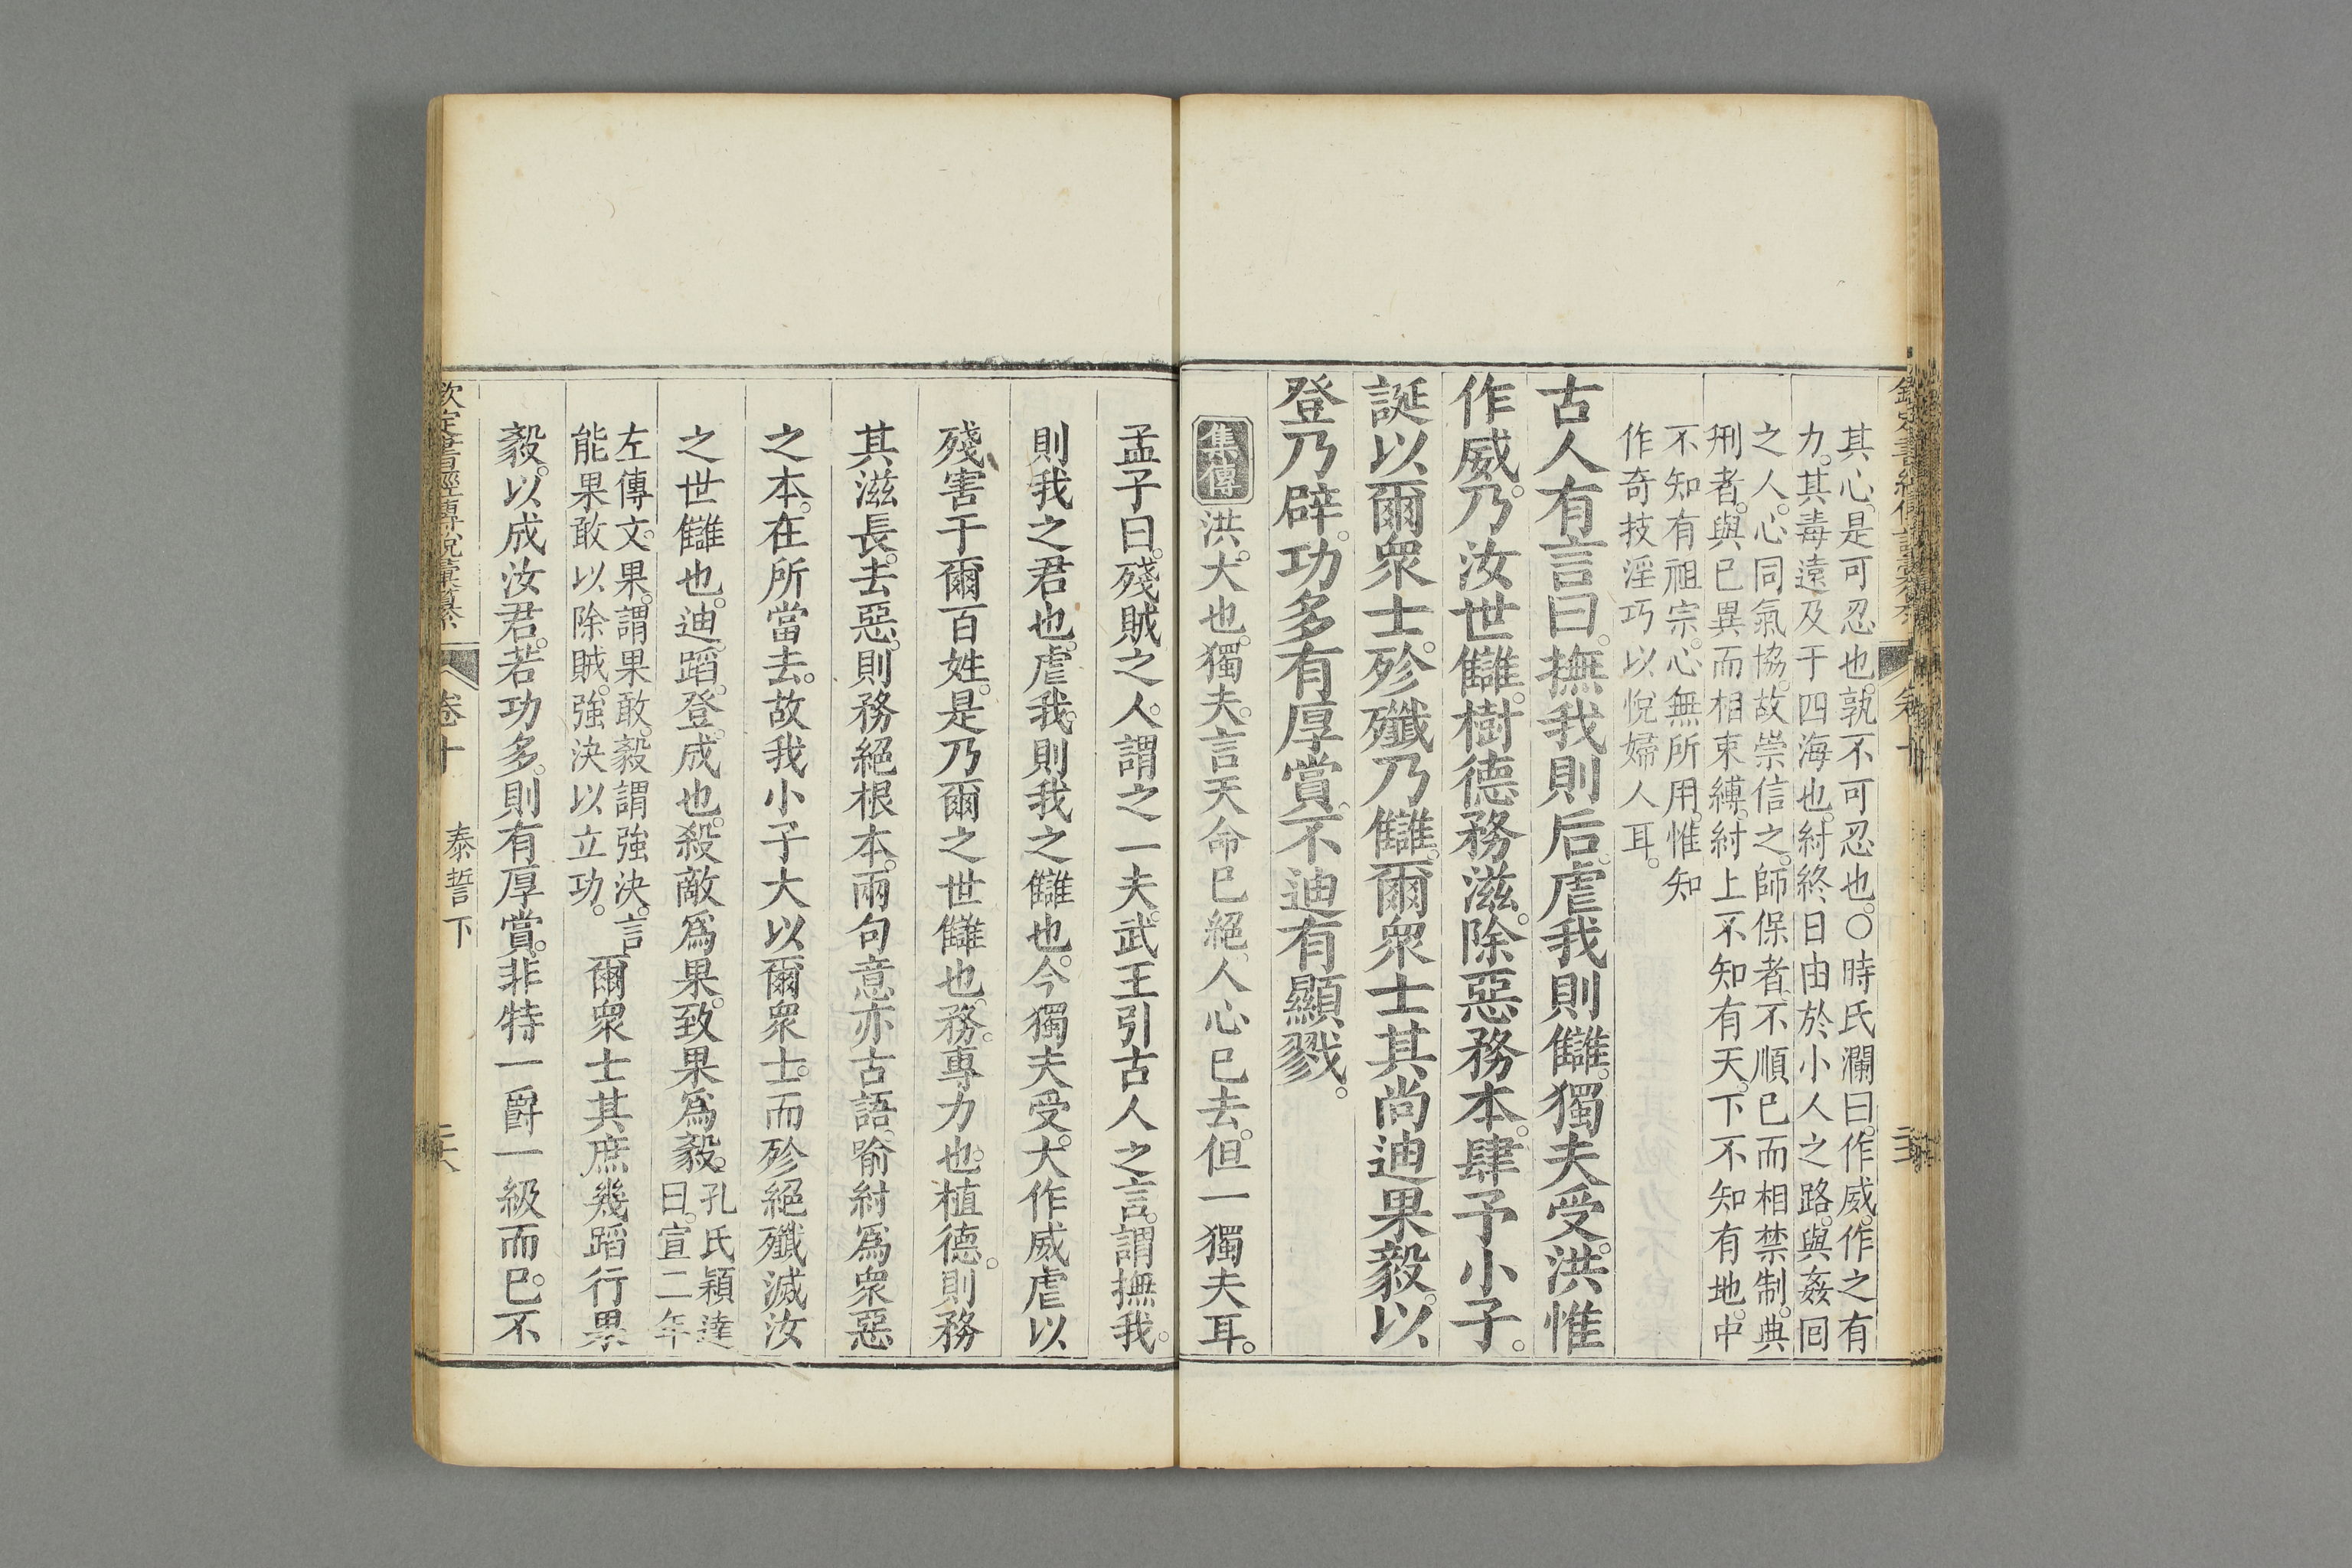 其心是可忍也。孰不可忍也。○時氏瀾曰。作威。作之有
力。其毒遠及于四海也。紂終日由於小人之路。與姦回
之人。心同氣協。故崇信之。師保者。不順已而相禁制。典
刑者。與已異而相束縛。紂上不知有天。下不知有地。中
不知有祖宗。心無所用。惟知
作奇技淫巧以悅婦人耳。
古人有言曰。撫我則后。虐我則讎。獨夫受。洪惟
作威。乃汝世讎。樹德務滋。除惡務本。肆予小子。
誕以爾衆士。殄殲乃讎。爾衆士其尚迪果毅。以
登乃辟。功多有厚賞。不迪有顯戮。
集傳 洪。大也。獨夫。言天命已絕。人心已去。但一獨夫耳。
孟子曰。殘賊之人。謂之一夫。武王引古人之言。謂撫我。
則我之君也。虐我。則我之讎也。今獨夫受。大作威虐以
殘害于爾百姓。是乃爾之世讎也。務。專力也。植德。則務
其滋長。去惡。則務絕根本。兩句意亦古語。喻紂爲衆惡
之本。在所當去。故我小子大以爾衆士。而殄絕殲滅汝
之世讎也。迪。蹈。登。成也。殺敵爲果。致果爲毅。孔氏穎達
曰。宣二年
左傳文。果。謂果敢。毅。謂強決。言
能果敢以除賊。強決以立功。
爾衆士其庶幾蹈行果
毅。以成汝君。若功多。則有厚賞。非特一爵一級而已。不
欽定書經傳說彙纂
卷十
泰誓下